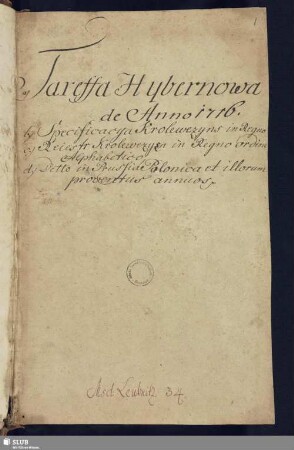 1
a, Tareffa Hybernowa
de Anno 1716.
b, Specificacya Krolewczyns in Regno
c, Reiestr Krolewczyzn in Regno ordine
Alphabetico,
d, Detto in Prussia Polonica et illorum
proventus annuos,
Mscl Leubnitz. 34.
SLUB
Wir führen Wissen.